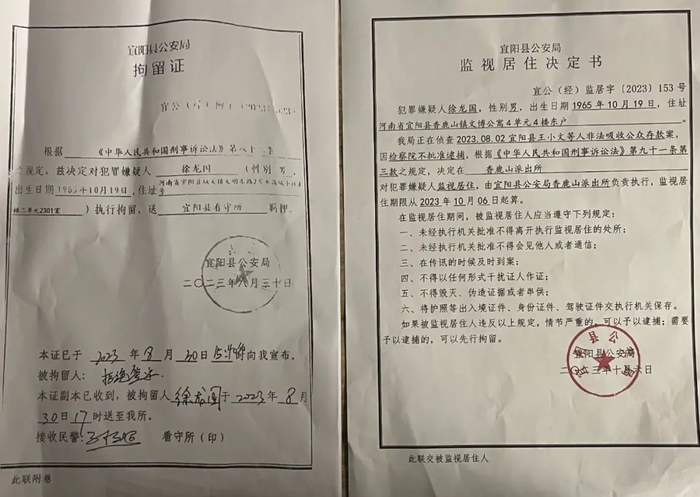 宜阳县公安局
拘留证
宜公
根据《中华人民共和国刑事诉讼法》第八十二条
之规定，兹决定对犯罪嫌疑人 徐龙国 （性别 男
出生日期 1965年10月19日，住址
楼二单元2301室 ）执行拘留，送 宜阳县看守所 羁押。
宜阳县公安局
二〇二三年八月三十日
本证已于 2023 年 8 月 30 日 15 时 向我宣布。
被拘留人：拒绝签字
本证副本已收到，被拘留人 徐龙国 于 2023 年 8 月
30 日 17 时送至我所。
接收民警： 看守所（印）
此联附卷
宜阳县公安局
监视居住决定书
宜公（经）监居字〔2023〕153号
犯罪嫌疑人徐龙国，性别男，出生日期 1965年10月19日，住址
河南省宜阳县香鹿山镇文博公寓4单元4楼东户
我局正在侦查2023.08.02宜阳县王小丈等人非法吸收公众存款案，
因检察院不批准逮捕，根据《中华人民共和国刑事诉讼法》第九十一条第
三款之规定，决定在 香鹿山派出所
对犯罪嫌疑人监视居住，由宜阳县公安局香鹿山派出所负责执行，监视居
住期限从2023年10月06日起算。
在监视居住期间，被监视居住人应当遵守下列规定：
一、未经执行机关批准不得离开执行监视居住的处所；
二、未经执行机关批准不得会见他人或者通信；
三、在传讯的时候及时到案；
四、不得以任何形式干扰证人作证；
五、不得毁灭、伪造证据或者串供；
六、将护照等出入境证件、身份证件、驾驶证件交执行机关保存。
如果被监视居住人违反以上规定，情节严重的，可以予以逮捕；需要
予以逮捕的，可以先行拘留。
宜阳县公安局
二〇二三年十月六日
此联交被监视居住人